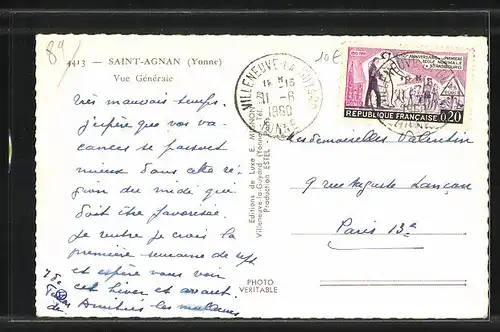 89
4413 — SAINT-AGNAN (Yonne)
Vue Générale
Très mauvais temps.
J'espère que vos va-
cances se passent
mieux dans cette ré-
gion du midi qui
doit être favorisée.
Je rentre je crois la
première semaine de sept
et espère vous voir
cet hiver et avant.
Amitiés
de
Editions de Luxe E. MIGNON
Villeneuve-la-Guyard (Yonne) Tél.
Production ESTEL
PHOTO
VERITABLE
VILLENEUVE-LA-GUYARD
18 H 15
1960
YONNE
10 €
ANNIVERSAIRE DE LA PREMIÈRE
ECOLE NORMALE
STRASBOURG
REPUBLIQUE FRANÇAISE
0,20
Mesdemoiselles Valentin
9 rue Auguste Lançon
Paris 13e